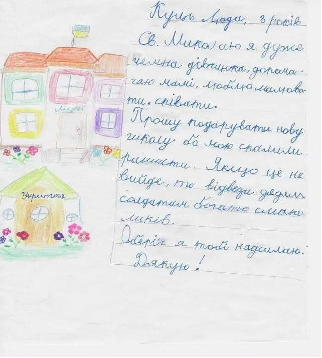 Куць Люда, 3 років
Св. Миколаю я дуже
чемна дівчинка, допома-
гаю мамі, люблю малюва-
ти, співати.
Прошу подарувати нову
бо мою спалили
Якщо це не
вийде, то відвези дядям
солдатам багато смако-
ликів.
Оберіг я твій надсилаю.
Дякую!
Укриття